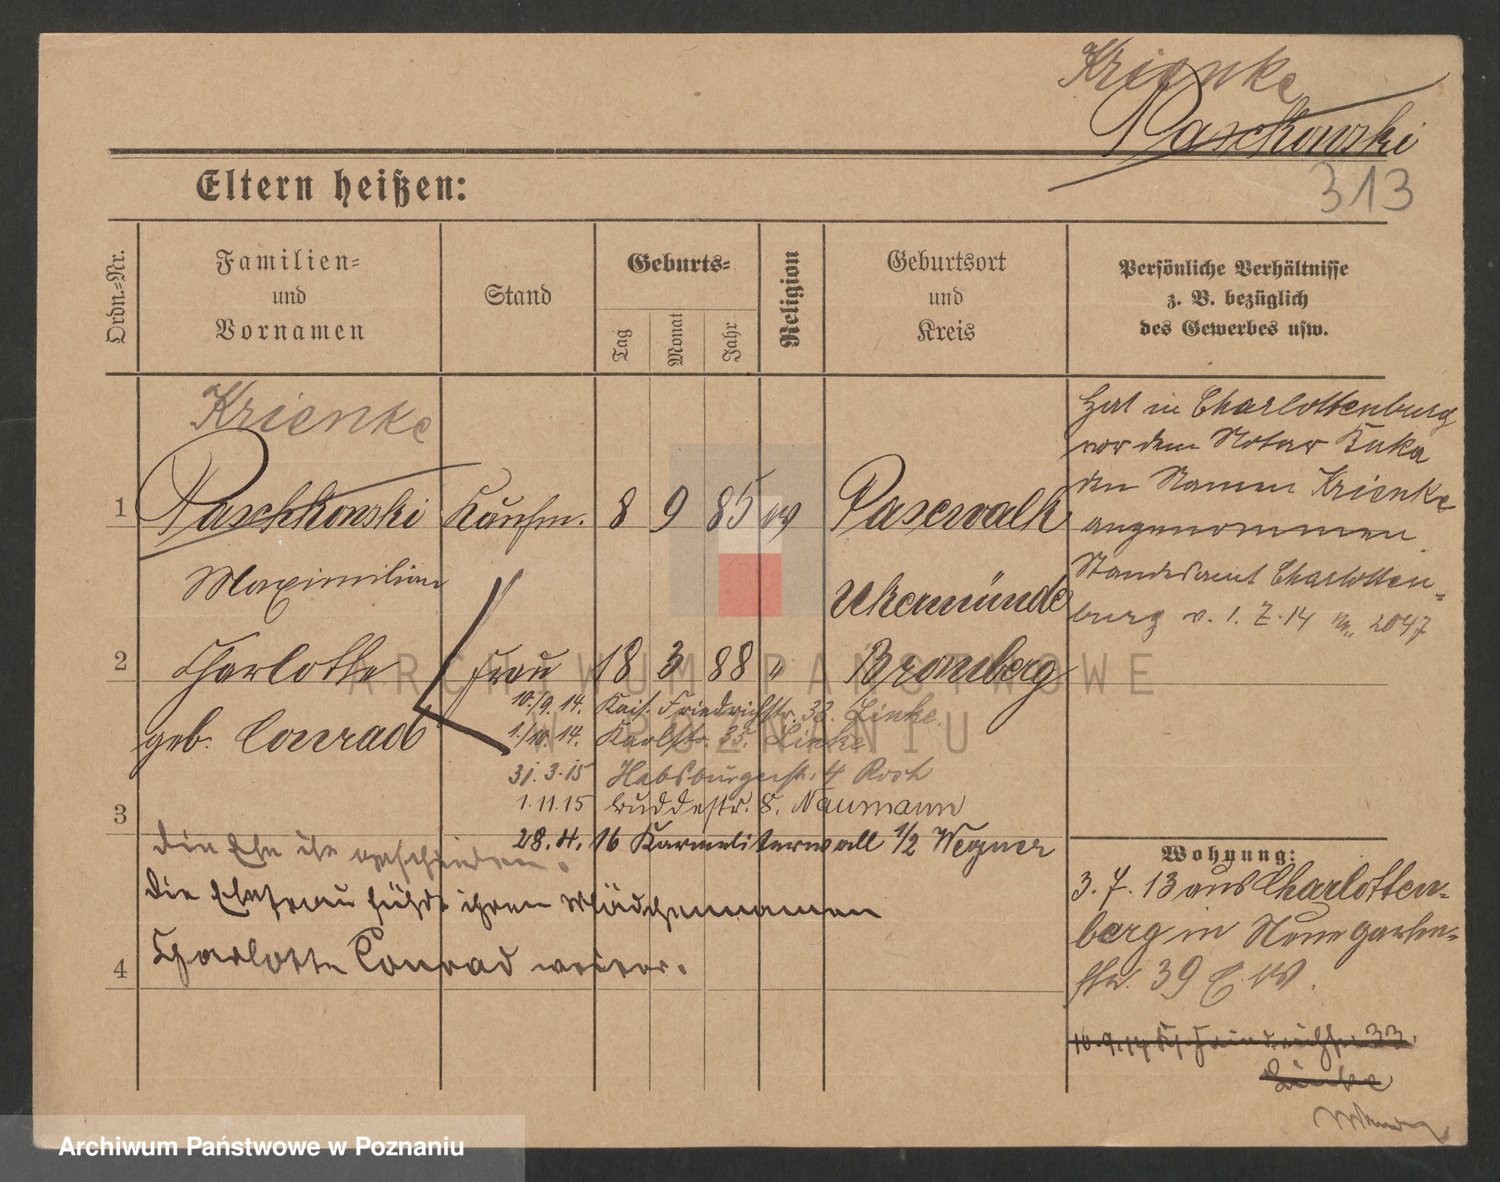 Krienke
Paschkowski
313
Eltern heißen:
Ordn.-Nr.
Familien-
und
Vornamen
Stand
Geburts-
Tag
Monat
Jahr
Religion
Geburtsort
und
Kreis
Persönliche Verhältnisse
z. B. bezüglich
des Gewerbes usw.
Krienke
1 Paschkowski Kaufm. 8 9 85 ev Pasewalk
Maximilian
Ukermünde
2 Charlotte Frau 18 3 88 " Bromberg
geb. Conrad
Hat in Charlottenburg
vor dem Notar
den Namen Krienke
angenommen.
Standesamt Charlotten-
burg v. 1. 7. 14 Nr. 2047
10./9. 14. Kais. Friedrichstr. 33. Linke.
1./10. 14. Karlstr. 35. Linke.
31. 3. 15 Habsburgerstr. 4 Roch
1. 11. 15 Buddestr. 8. Naumann
28. 4. 16 Karmeliterwall 1/2 Wegner
3
die Ehe ist geschieden.
die Ehefrau führt ihren Mädchennamen
4 Charlotte Conrad weiter.
Wohnung:
3. 7. 13 aus Charlotten-
berg in Neue Garten-
str. 39
10. 9. 14 33
Linke
ARCHIWUM PAŃSTWOWE
W POZNANIU
Archiwum Państwowe w Poznaniu